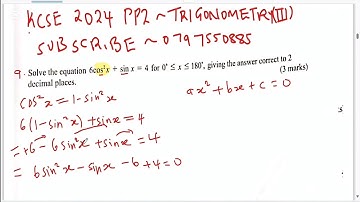 KCSE 2024 PP2 ~ TRIGONOMETRY(III)
SUBSCRIBE ~ 0797550885
9. Solve the equation 6cos²x + sin x = 4 for 0° ≤ x ≤ 180°, giving the answer correct to 2
decimal places. (3 marks)
cos²x = 1-sin²x
ax² + bx + c = 0
6(1-sin²x) + sinx = 4
= +6 - 6sin²x + sinx = 4
= 6sin²x - sinx - 6 + 4 = 0